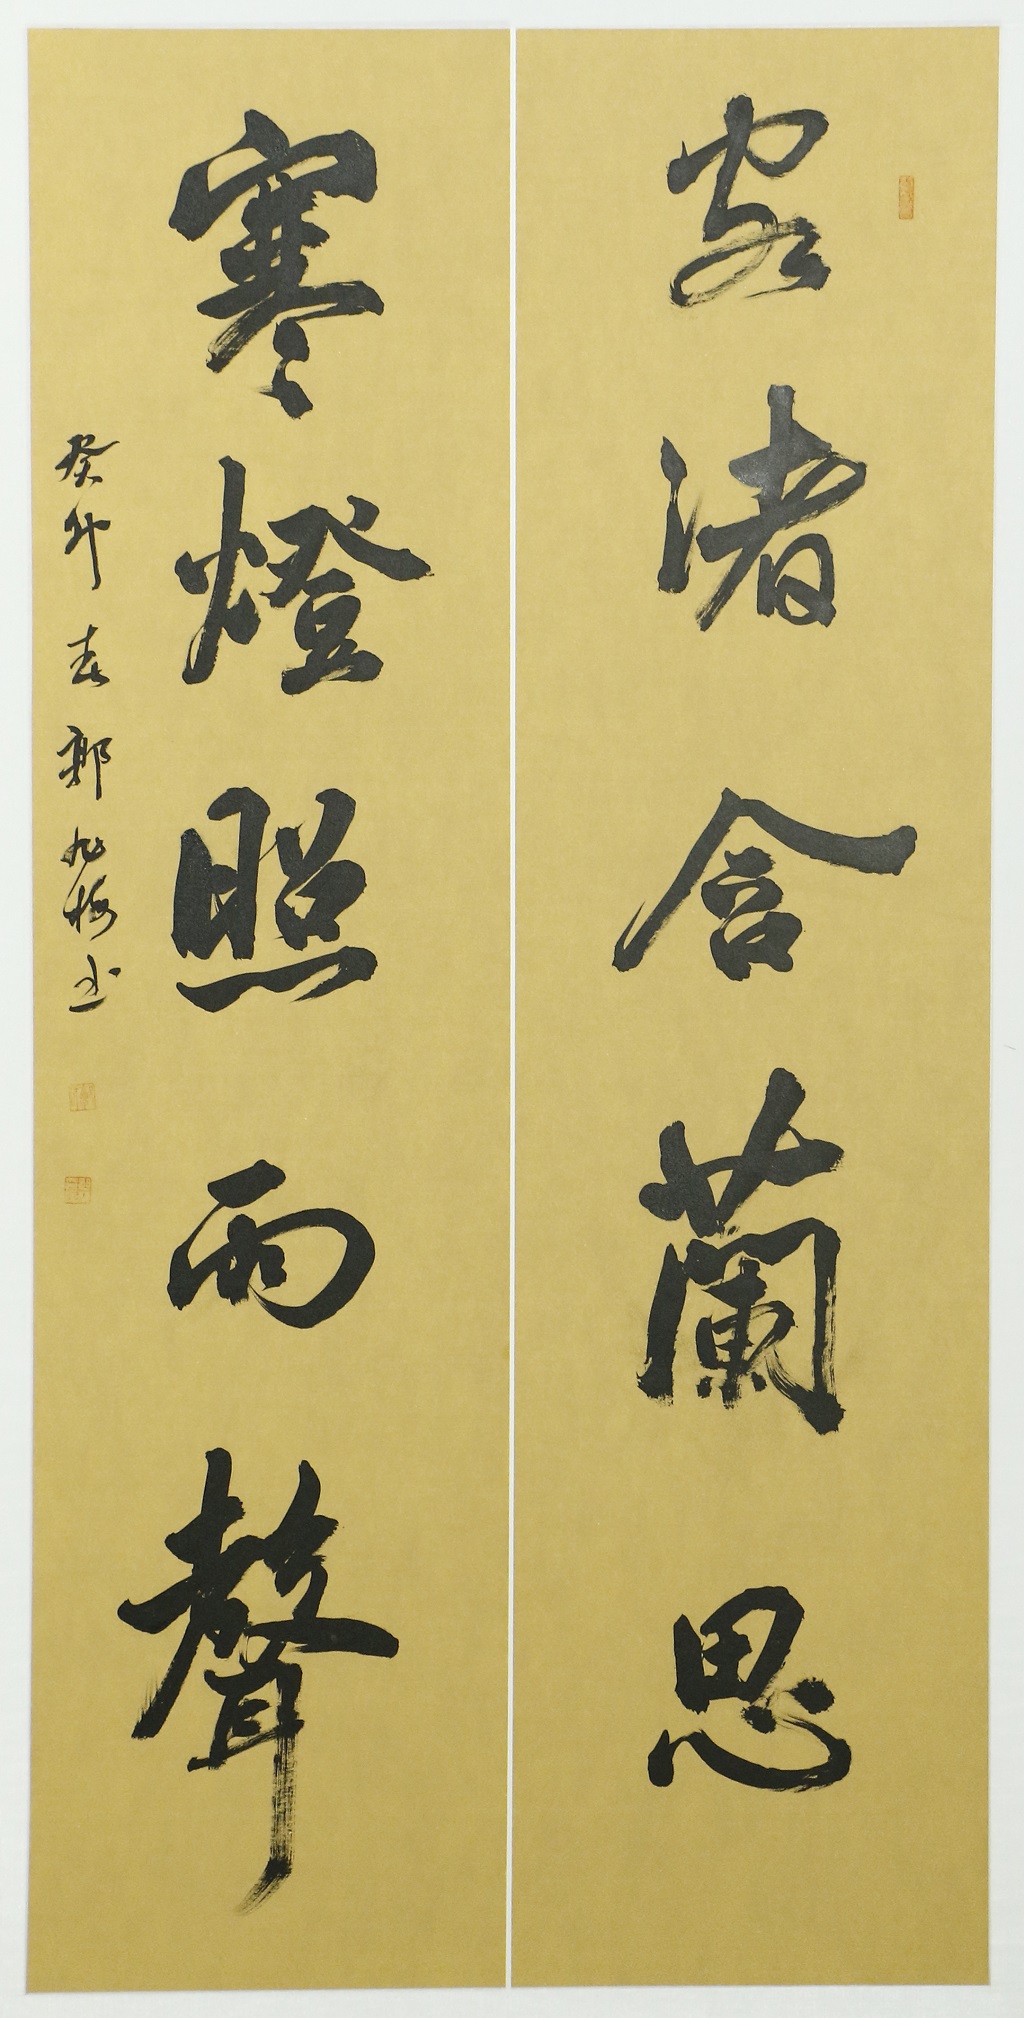 渚含蘭思
寒燈照雨聲
癸卯春郭旭梅书